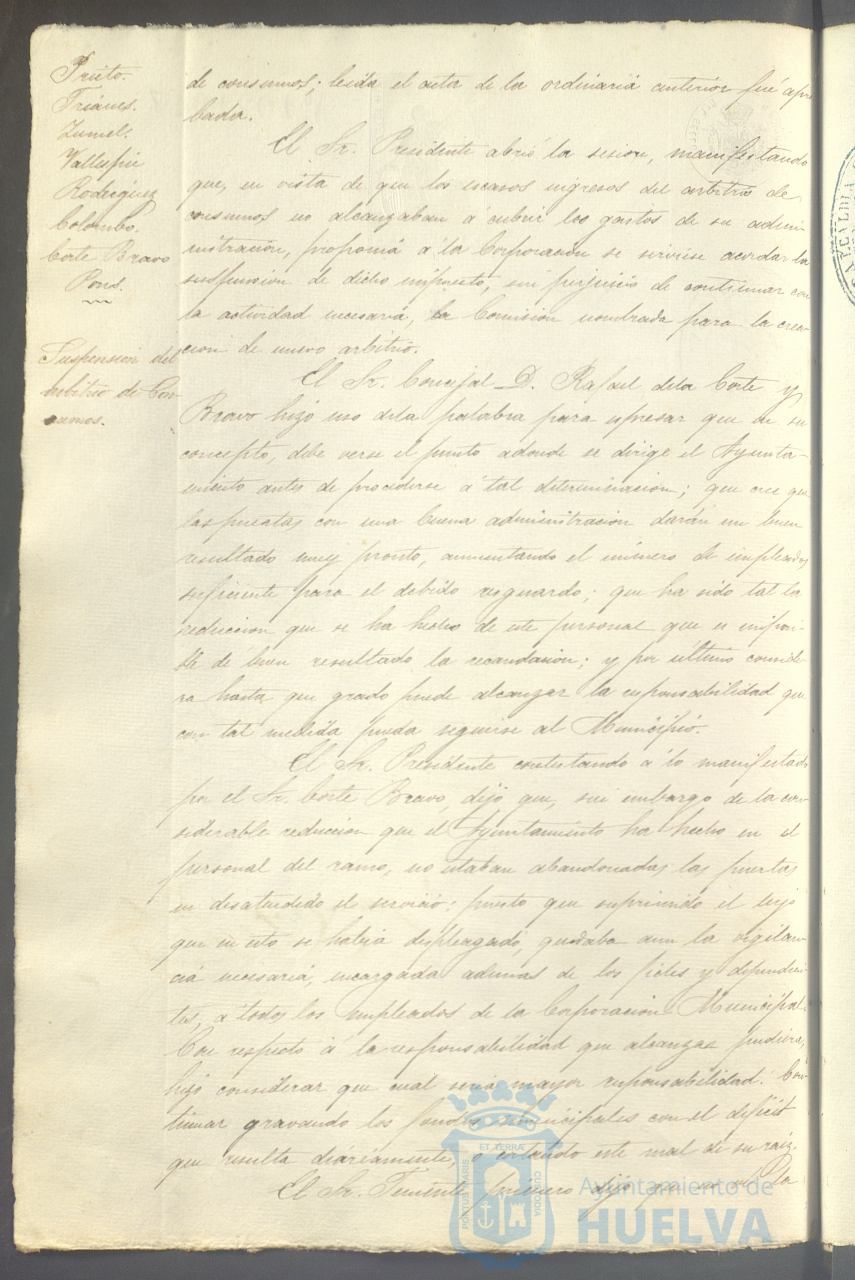 Prieto.
Trianes.
Zumel.
Vallespin
Rodriguez
Colombo.
Corte Bravo
Pons.
Suspension del
arbitrio de Con-
sumos.
de consumos; leida el acta de la ordinaria anterior fué apro
bada.
El Sr. Presidente abrió la sesion, manifestando
que, en vista de que los escasos ingresos del arbitrio de
consumos no alcanzaban a cubrir los gastos de su admi-
nistración, proponia á la Corporacion se sirviese acordar la
suspension de dicho impuesto, sin perjuicio de continuar con
la actividad necesaria, la Comision nombrada para la crea-
cion de nuevo arbitrio.
El Sr. Concejal D. Rafael de la Corte y
Bravo hizo uso de la palabra para espresar que en su
concepto, debe verse el punto adonde se dirige el Ayunta-
miento antes de procederse á tal determinacion; que cree que
las puertas con una buena administracion darán un buen
resultado muy pronto, aumentando el número de empleados
suficiente para el debido resguardo; que ha sido tal la
reduccion que se ha hecho de este personal que es imposi-
ble dé buen resultado la recaudasion; y por ultimo conside-
ra hasta que grado puede alcanzar la responsabilidad que
con tal medida pueda seguirse al Municipio.
El Sr. Presidente contestando á lo manifestado
por el Sr. Corte Bravo, dijo que, sin embargo de la con-
siderable reduccion que el Ayuntamiento ha hecho en el
personal del ramo, no estaban abandonadas las puertas
en desatendido el servicio; puesto que suprimido el lujo
que en esto se habia desplegado, quedaba aun la vigilan-
cia necesaria, encargada ademas de los fieles y dependien-
tes, a todos los empleados de la Corporacion Municipal.
Con respecto á la responsabilidad que alcanzar pudiera,
hizo considerar que cual seria mayor responsabilidad: Con-
tinuar gravando los fondos municipales con el deficit
que resulta diariamente, o cortando este mal de su raiz.
El Sr. Teniente primero dijo que
Ayuntamiento de
HUELVA
PORTUS MARIS
ET TERRÆ
CUSTODIA
ALCALDIA